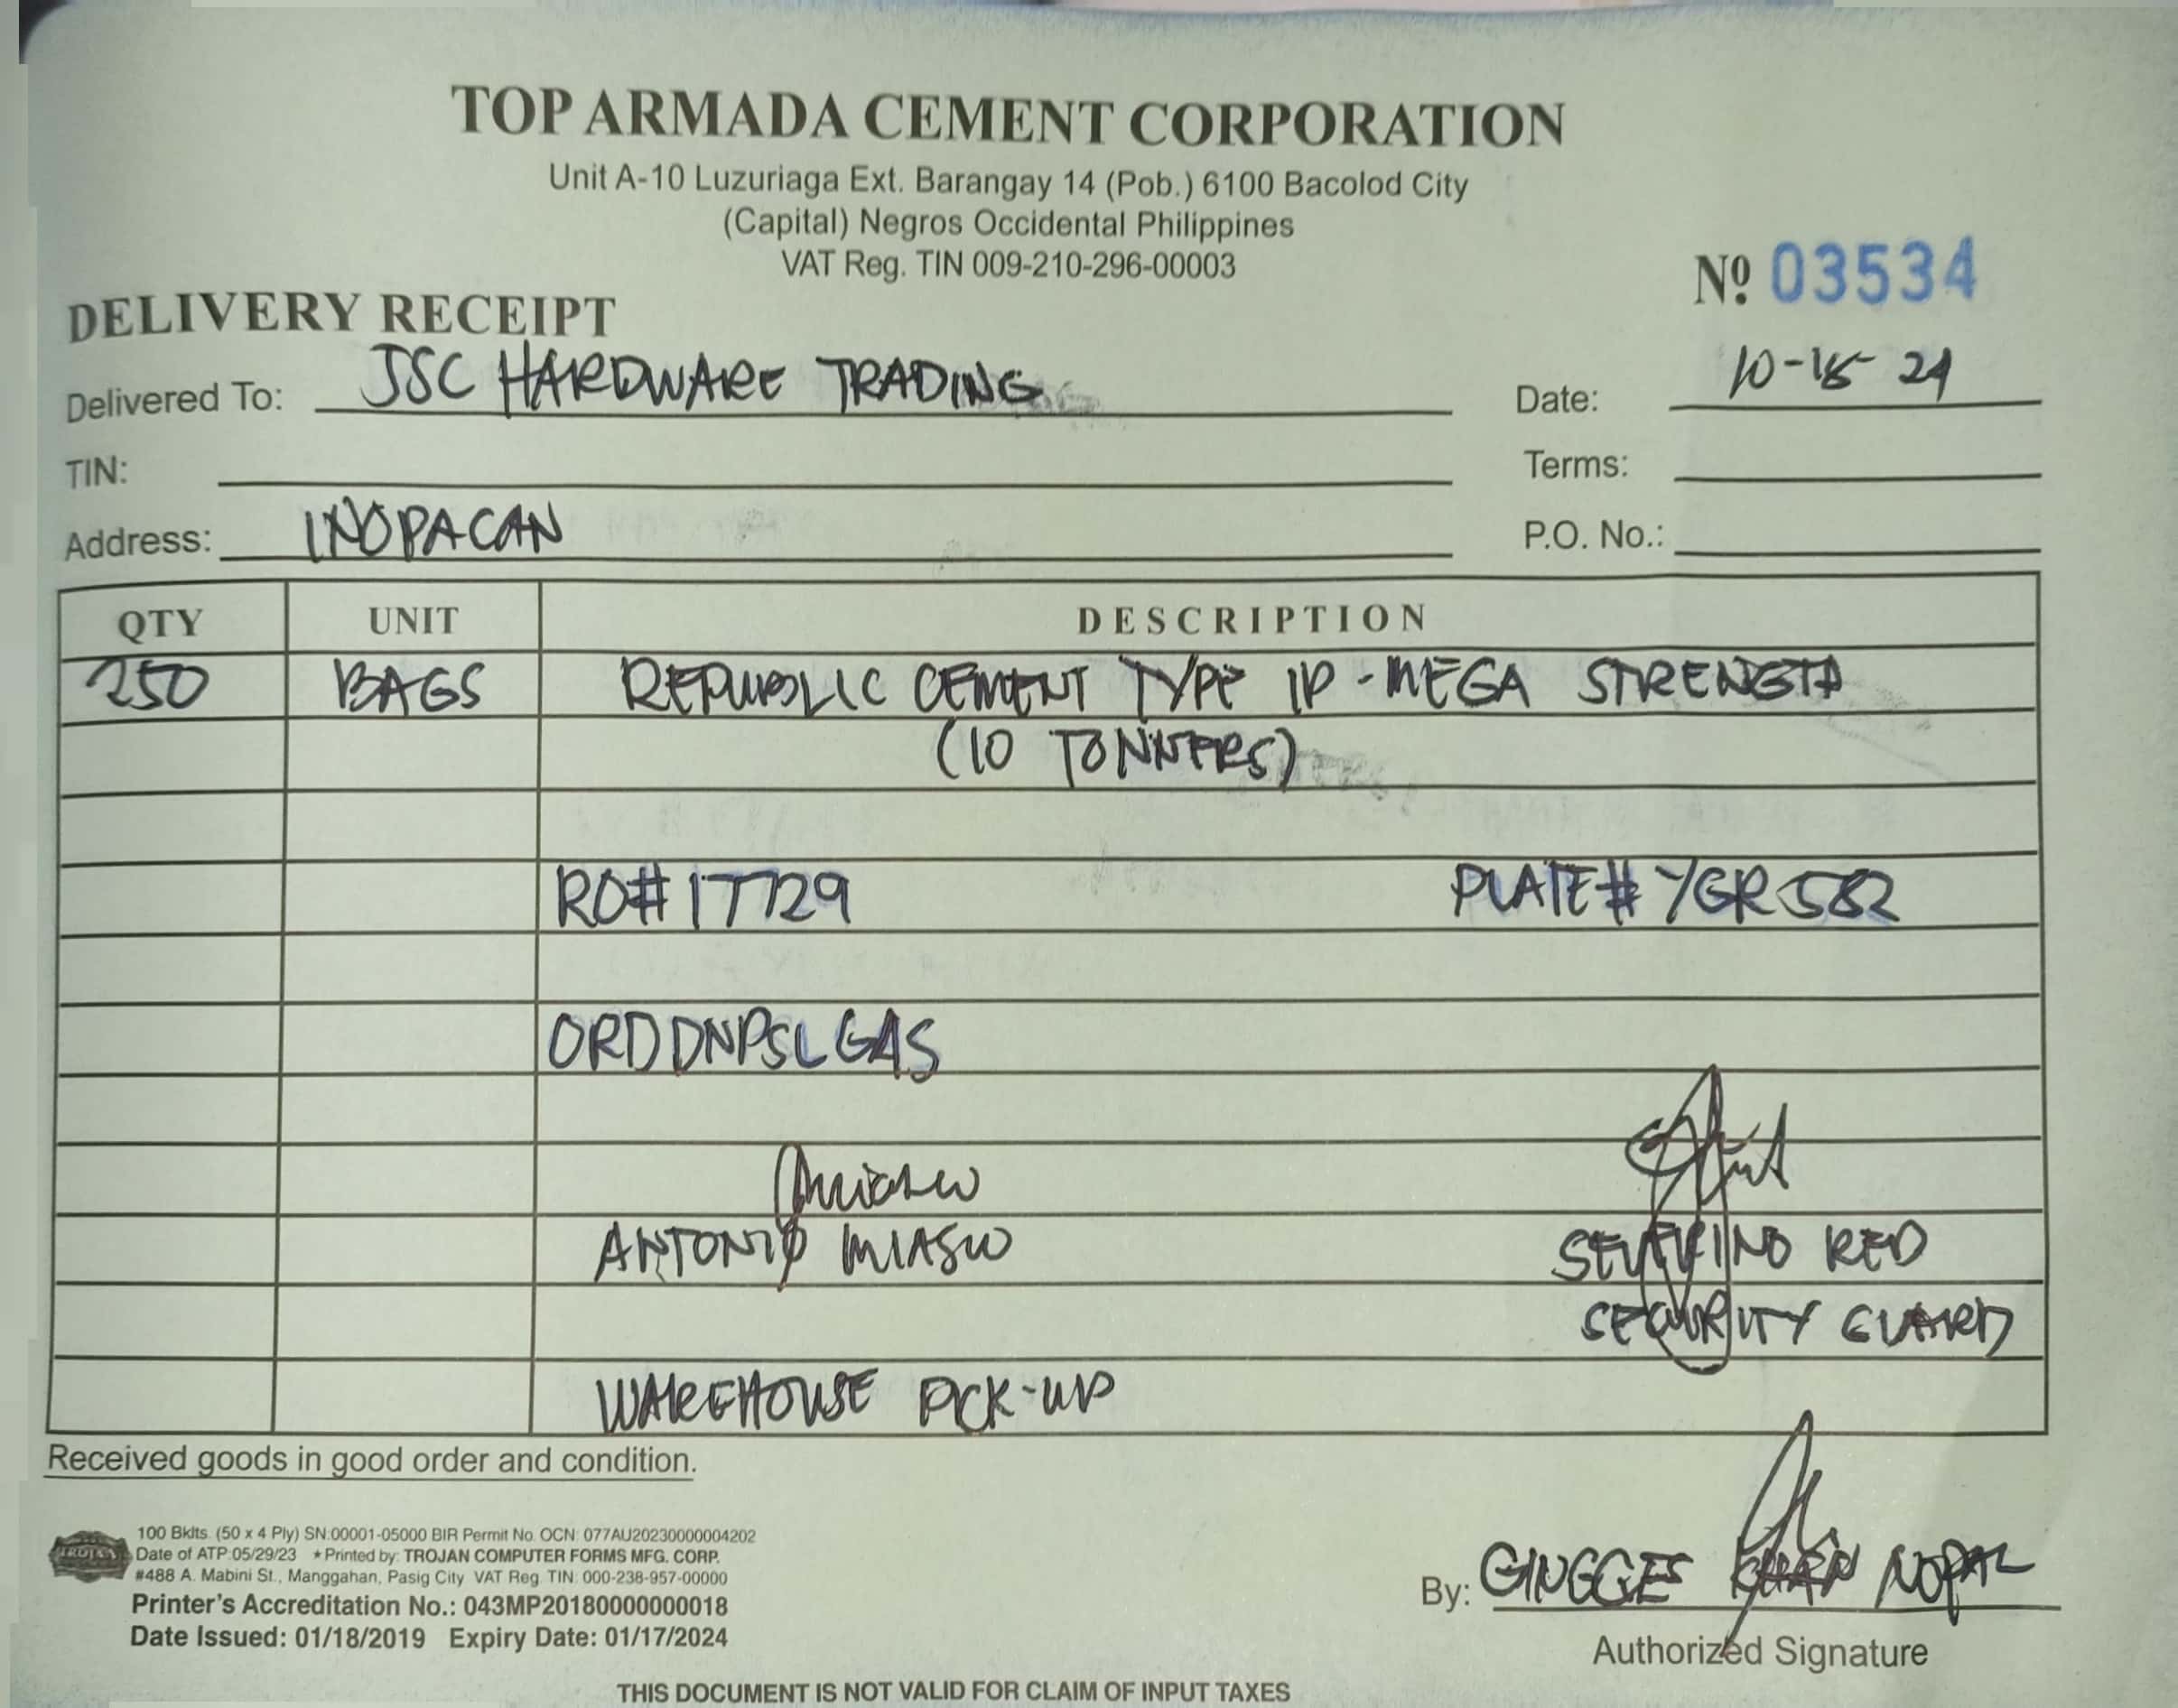 TOP ARMADA CEMENT CORPORATION
Unit A-10 Luzuriaga Ext. Barangay 14 (Pob.) 6100 Bacolod City
(Capital) Negros Occidental Philippines
VAT Reg. TIN 009-210-296-00003
Nº 03534
DELIVERY RECEIPT
Delivered To: JSC HARDWARE TRADING
Date: 10-18-24
TIN:
Terms:
Address: INOPACAN
P.O. No.:
QTY UNIT DESCRIPTION
250 BAGS REPUBLIC CEMENT TYPE 1P - MEGA STRENGTH
(10 TONNERS)
RO# 17729 PLATE# YGR 582
ORDDNPSLGAS
ANTONIO MIASCO SEVERINO RED
SECURITY GUARD
WAREHOUSE PICK-UP
Received goods in good order and condition.
100 Bklts. (50 x 4 Ply) SN:00001-05000 BIR Permit No. OCN: 077AU20230000004202
Date of ATP:05/29/23 ★Printed by: TROJAN COMPUTER FORMS MFG. CORP.
#488 A. Mabini St., Manggahan, Pasig City VAT Reg. TIN: 000-238-957-00000
Printer's Accreditation No.: 043MP20180000000018
Date Issued: 01/18/2019 Expiry Date: 01/17/2024
By: GINGGES NOPAL
Authorized Signature
THIS DOCUMENT IS NOT VALID FOR CLAIM OF INPUT TAXES